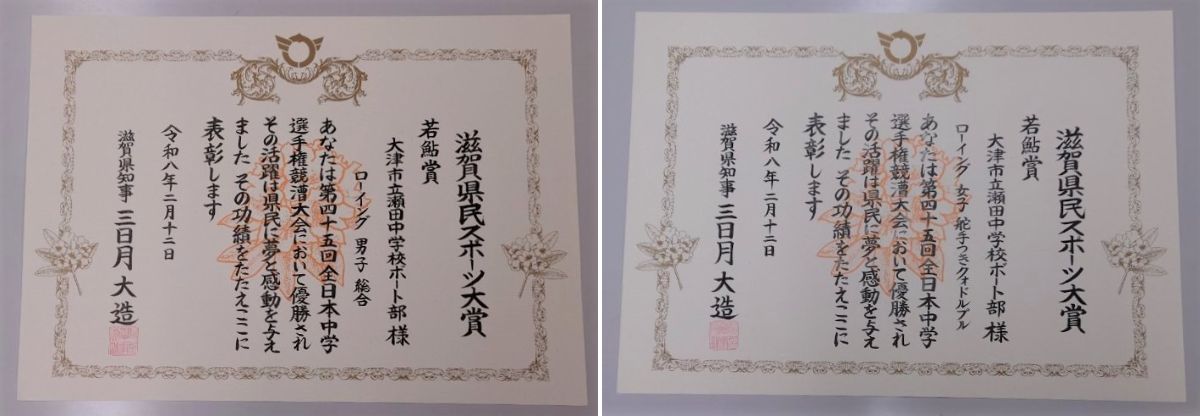 滋賀県民スポーツ大賞
若鮎賞
大津市立瀬田中学校ボート部 様
ローイング 男子 総合
あなたは第四十五回全日本中学
選手権競漕大会において優勝され
その活躍は県民に夢と感動を与え
ました その功績をたたえここに
表彰します
令和八年二月十二日
滋賀県知事 三日月 大造
滋賀県民スポーツ大賞
若鮎賞
大津市立瀬田中学校ボート部 様
ローイング 女子 舵手つきクォドルプル
あなたは第四十五回全日本中学
選手権競漕大会において優勝され
その活躍は県民に夢と感動を与え
ました その功績をたたえここに
表彰します
令和八年二月十二日
滋賀県知事 三日月 大造